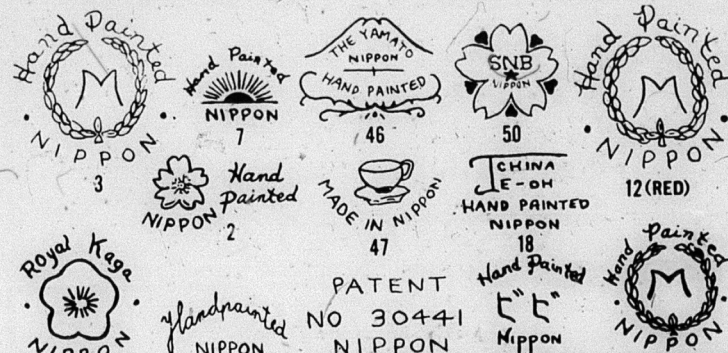 Hand Painted
M
NIPPON
3
Hand Painted
NIPPON
7
THE YAMATO
NIPPON
HAND PAINTED
46
SNB
NIPPON
50
Hand Painted
M
NIPPON
12 (RED)
Hand
Painted
NIPPON
2
MADE IN NIPPON
47
CHINA
E-OH
HAND PAINTED
NIPPON
18
Royal Kaga
NIPPON
Handpainted
NIPPON
PATENT
NO 30441
NIPPON
Hand Painted
ビビ
Nippon
Hand Painted
M
NIPPON